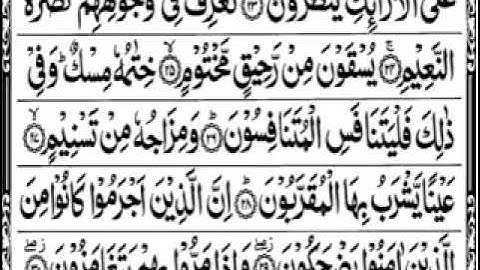 عَلَى الْاَرَآئِكِ يَنْظُرُوْنَ ﴿۲۳﴾ تَعْرِفُ فِيْ وُجُوْهِهِمْ نَضْرَةَ
النَّعِيْمِ ﴿۲۴﴾ يُسْقَوْنَ مِنْ رَّحِيْقٍ مَّخْتُوْمٍ ﴿۲۵﴾ خِتٰمُهٗ مِسْكٌ ؕ وَفِيْ
ذٰلِكَ فَلْيَتَنَافَسِ الْمُتَنَافِسُوْنَ ﴿۲۶﴾ وَمِزَاجُهٗ مِنْ تَسْنِيْمٍ ﴿۲۷﴾
عَيْنًا يَّشْرَبُ بِهَا الْمُقَرَّبُوْنَ ﴿۲۸﴾ اِنَّ الَّذِيْنَ اَجْرَمُوْا كَانُوْا مِنَ
الَّذِيْنَ اٰمَنُوْا يَضْحَكُوْنَ ﴿۲۹﴾ وَاِذَا مَرُّوْا بِهِمْ يَتَغَامَزُوْنَ ﴿۳۰﴾